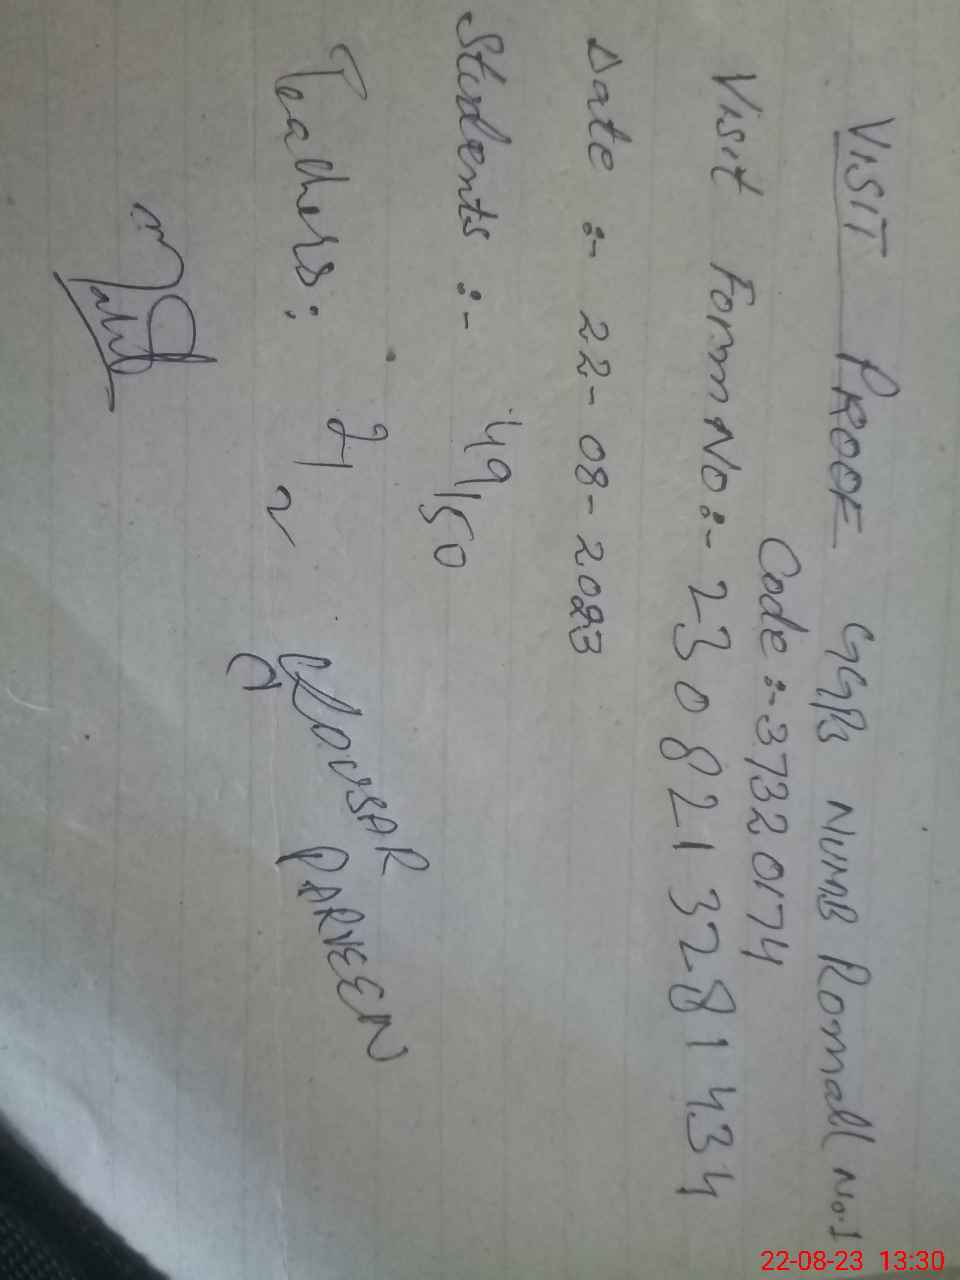 VISIT PROOF GGPS NUMB Romall No.1
Code :- 37320174
Visit Form No :- 2308213281434
Date :- 22-08-2023
Students :- 49/50
Teachers : 2/2
KOUSAR PARVEEN
22-08-23 13:30